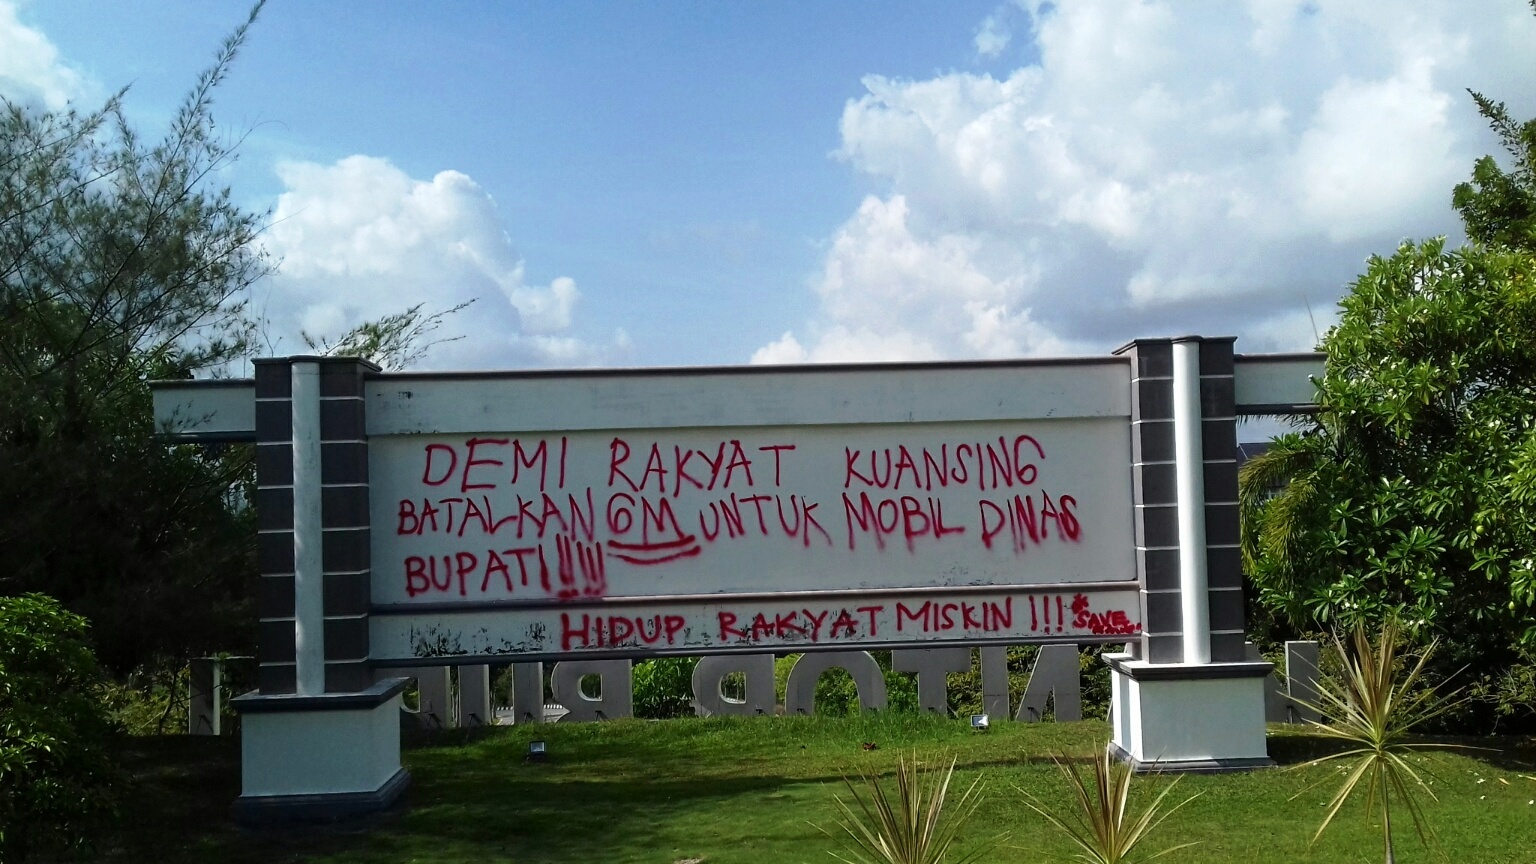 DEMI RAKYAT KUANSING
BATALKAN 6M UNTUK MOBIL DINAS
BUPATI!!!!!
HIDUP RAKYAT MISKIN !!! *SAVE